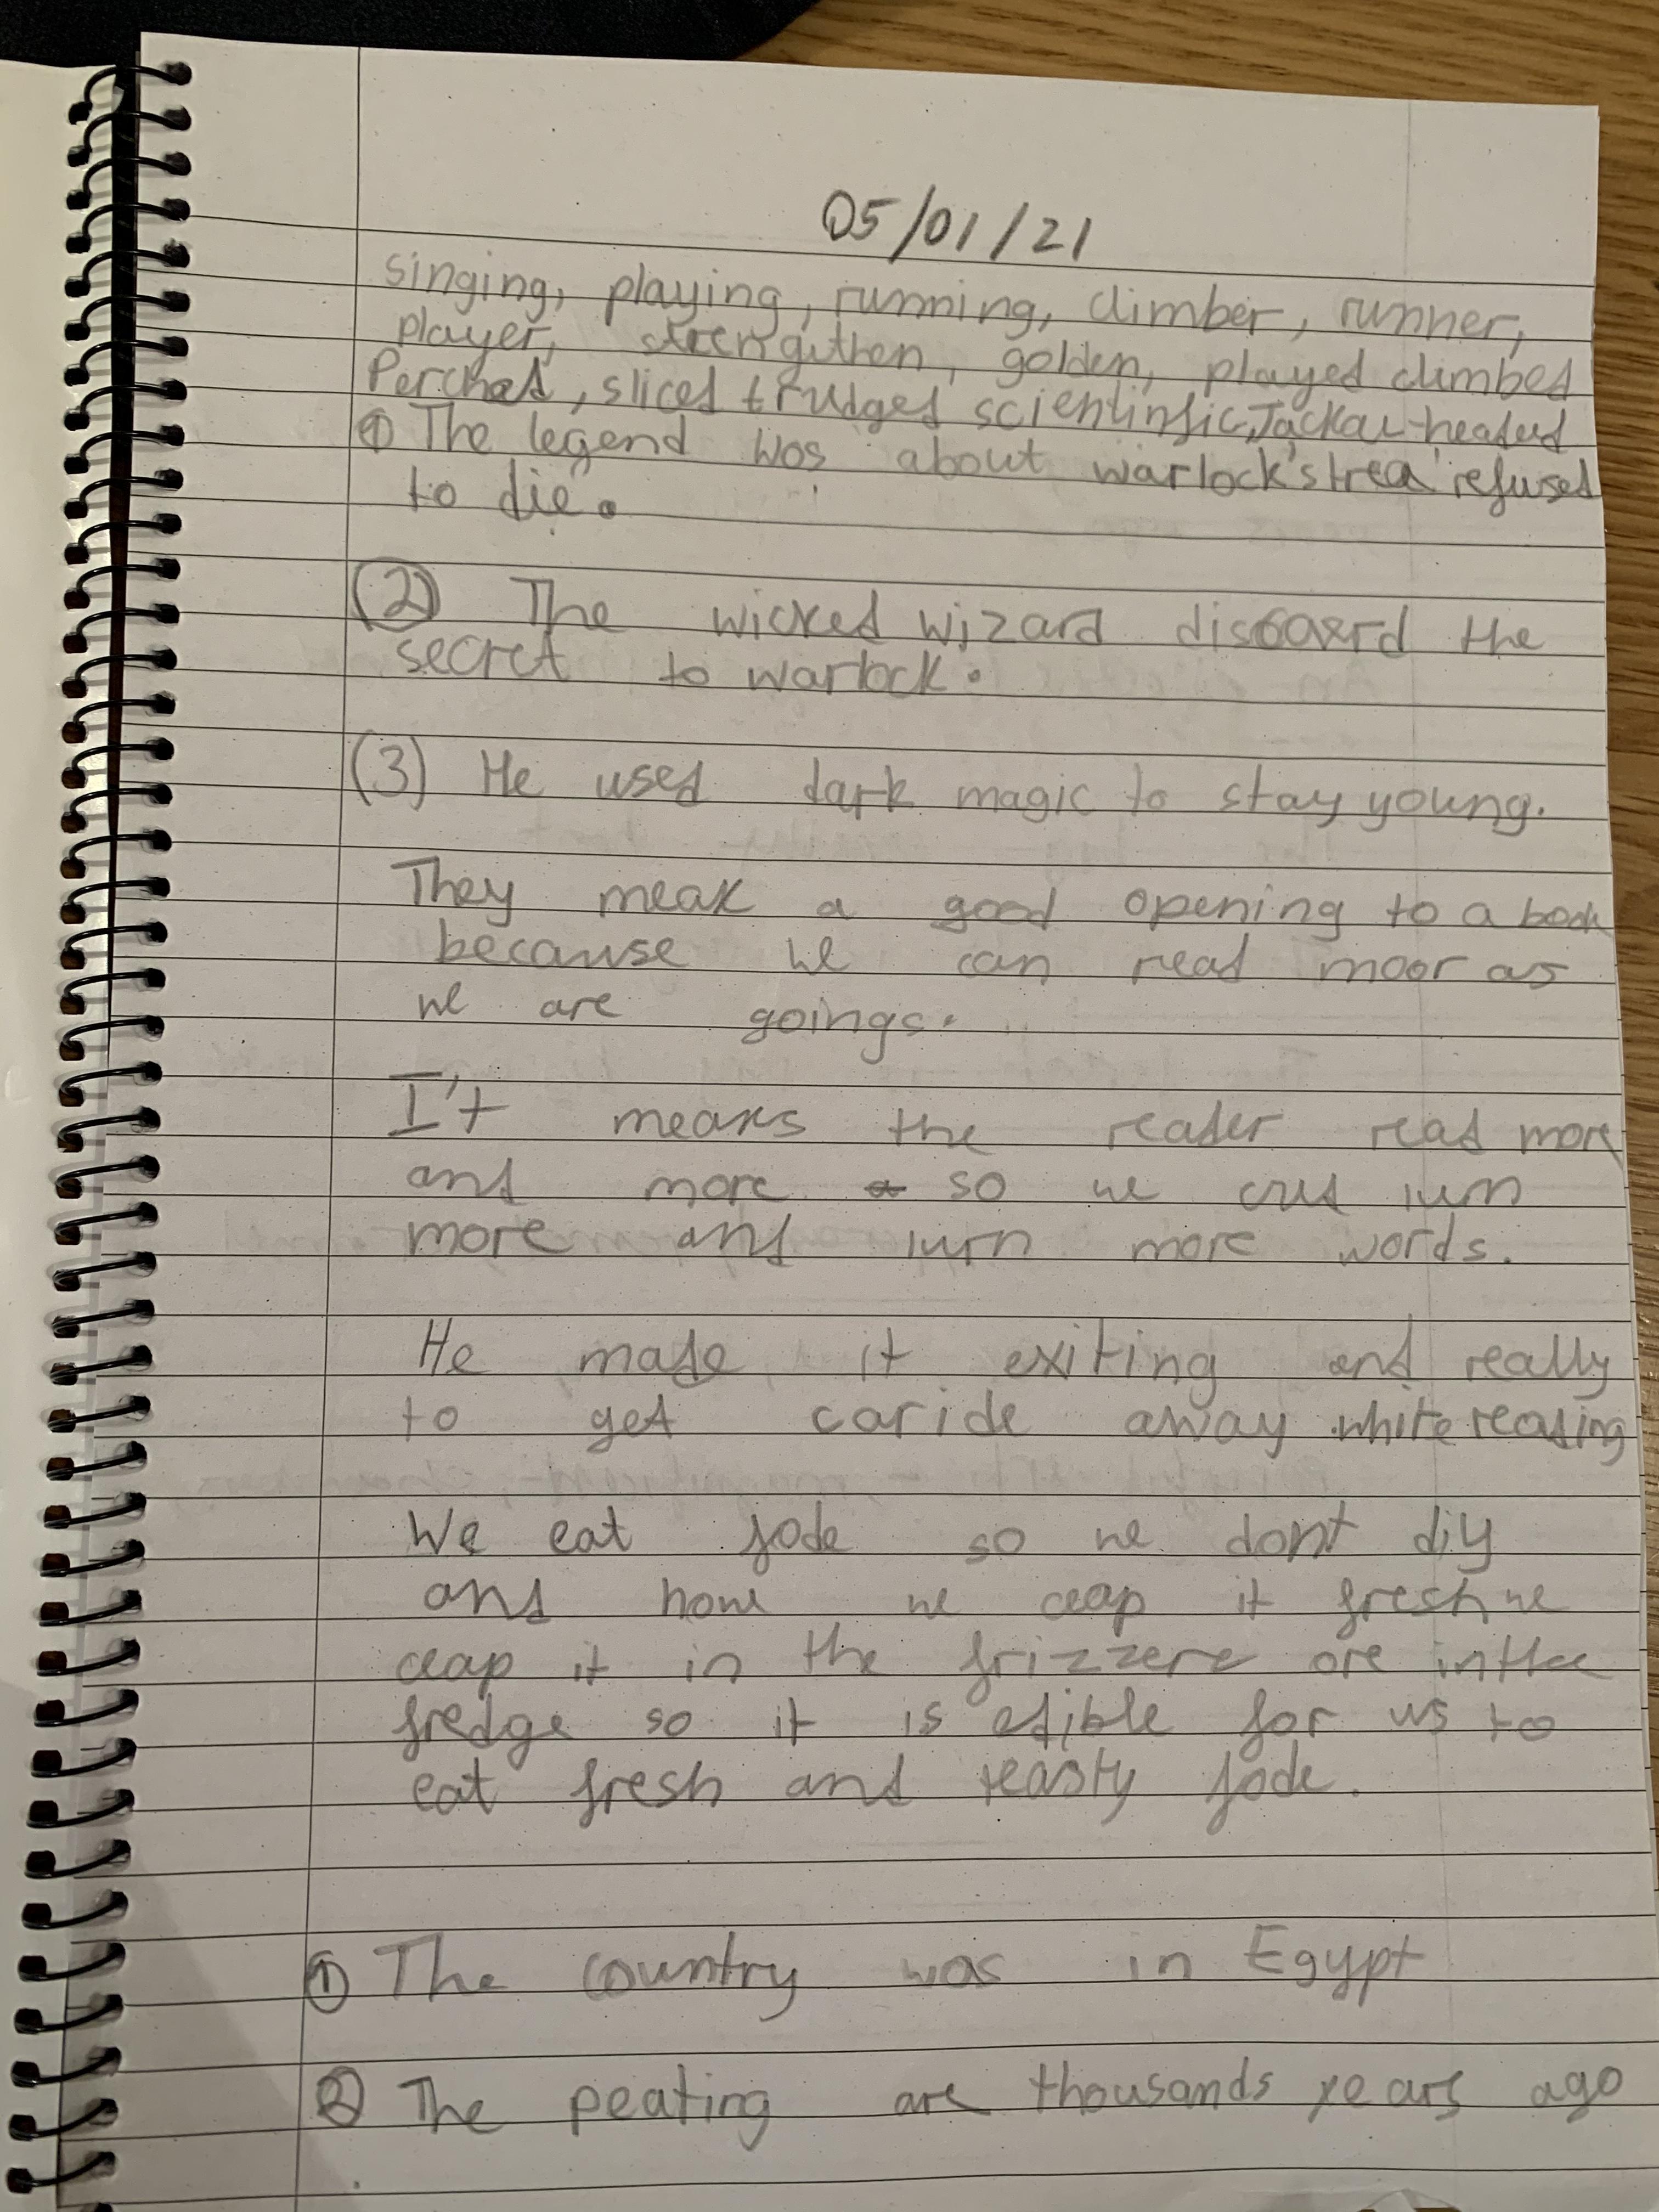 05/01/21
singing, playing, running, climber, runner,
player, strengthen, golden, played climbed
Perched, sliced trudged scientinfic, Jackal-headed
① The legend was about warlock's trea refused
to die.
(2) The wicked wizard discoverd the
secret to warlock.
(3) He used dark magic to stay young.
They meak a good opening to a book
because we can read moor as
we are goings.
I't means the reader read more
and more so we cud lurn
more and lurn more words.
He made it exiting and really
to get caride away white reading
We eat fode so we dont diy
and how we ceap it fresh we
ceap it in the frizzere ore in the
fredge so it is edible for us to
eat fresh and teasty fode.
① The country was in Egypt
② The peating are thousands years ago